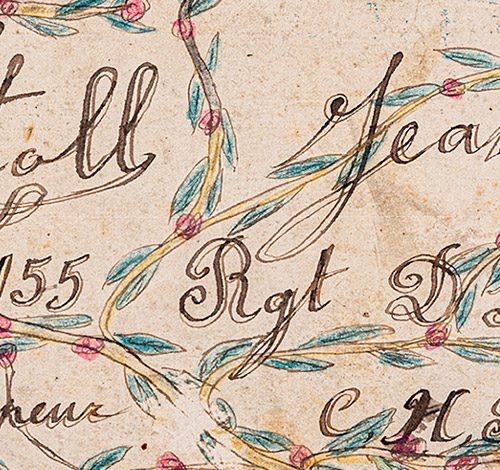 toll Jean
155 Rgt D
neur C. H. S